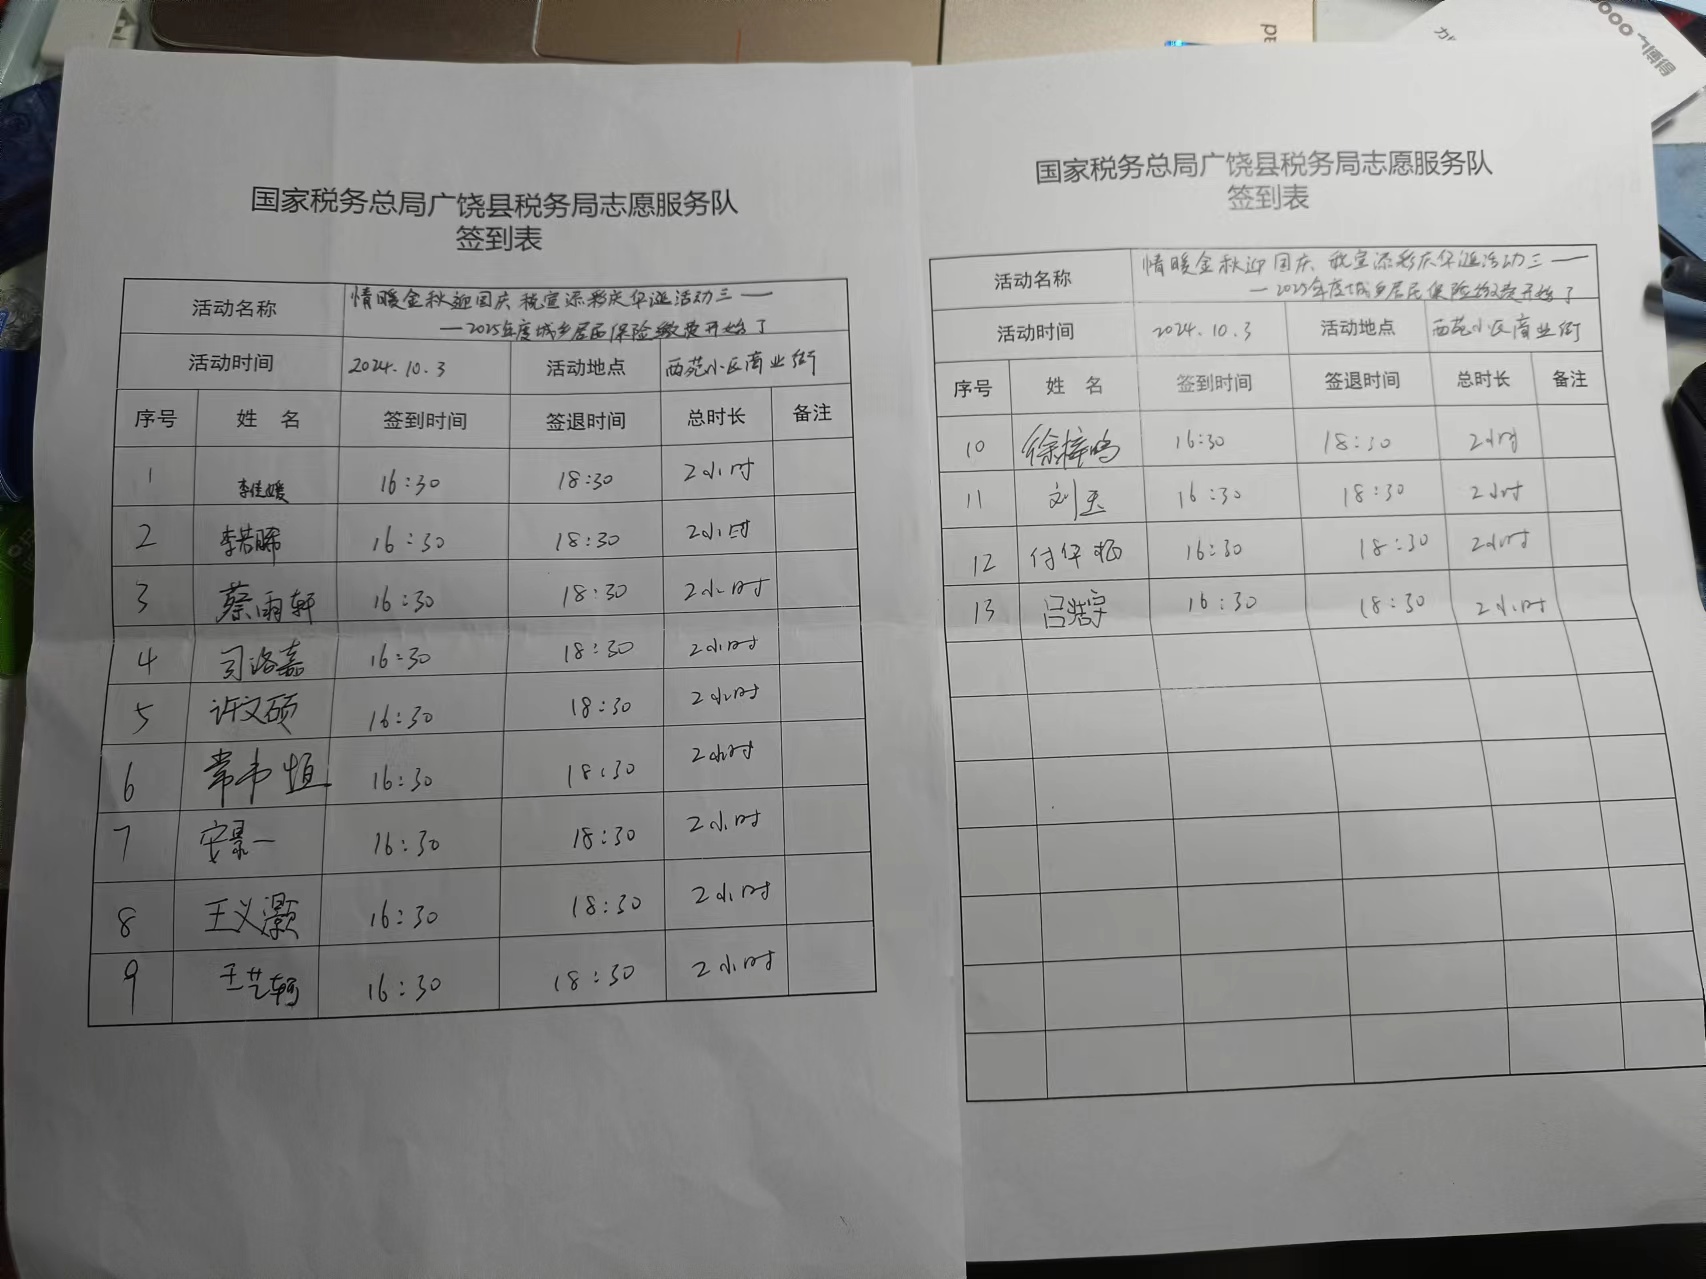 国家税务总局广饶县税务局志愿服务队
签到表
活动名称 情暖金秋迎国庆 税宣添彩庆华诞活动三——
—2025年度城乡居民保险缴费开始了
活动时间 2024.10.3 活动地点 西苑小区商业街
序号 姓 名 签到时间 签退时间 总时长 备注
1 李佳媛 16:30 18:30 2小时
2 李若曦 16:30 18:30 2小时
3 蔡雨轩 16:30 18:30 2小时
4 司洛嘉 16:30 18:30 2小时
5 许文硕 16:30 18:30 2小时
6 常韦恒 16:30 18:30 2小时
7 安景一 16:30 18:30 2小时
8 王义灏 16:30 18:30 2小时
9 王艺轲 16:30 18:30 2小时
国家税务总局广饶县税务局志愿服务队
签到表
活动名称 情暖金秋迎国庆 税宣添彩庆华诞活动三——
—2025年度城乡居民保险缴费开始了
活动时间 2024.10.3 活动地点 西苑小区商业街
序号 姓 名 签到时间 签退时间 总时长 备注
10 徐梓鸣 16:30 18:30 2小时
11 刘玉 16:30 18:30 2小时
12 16:30 18:30 2小时
13 吕浩宇 16:30 18:30 2小时